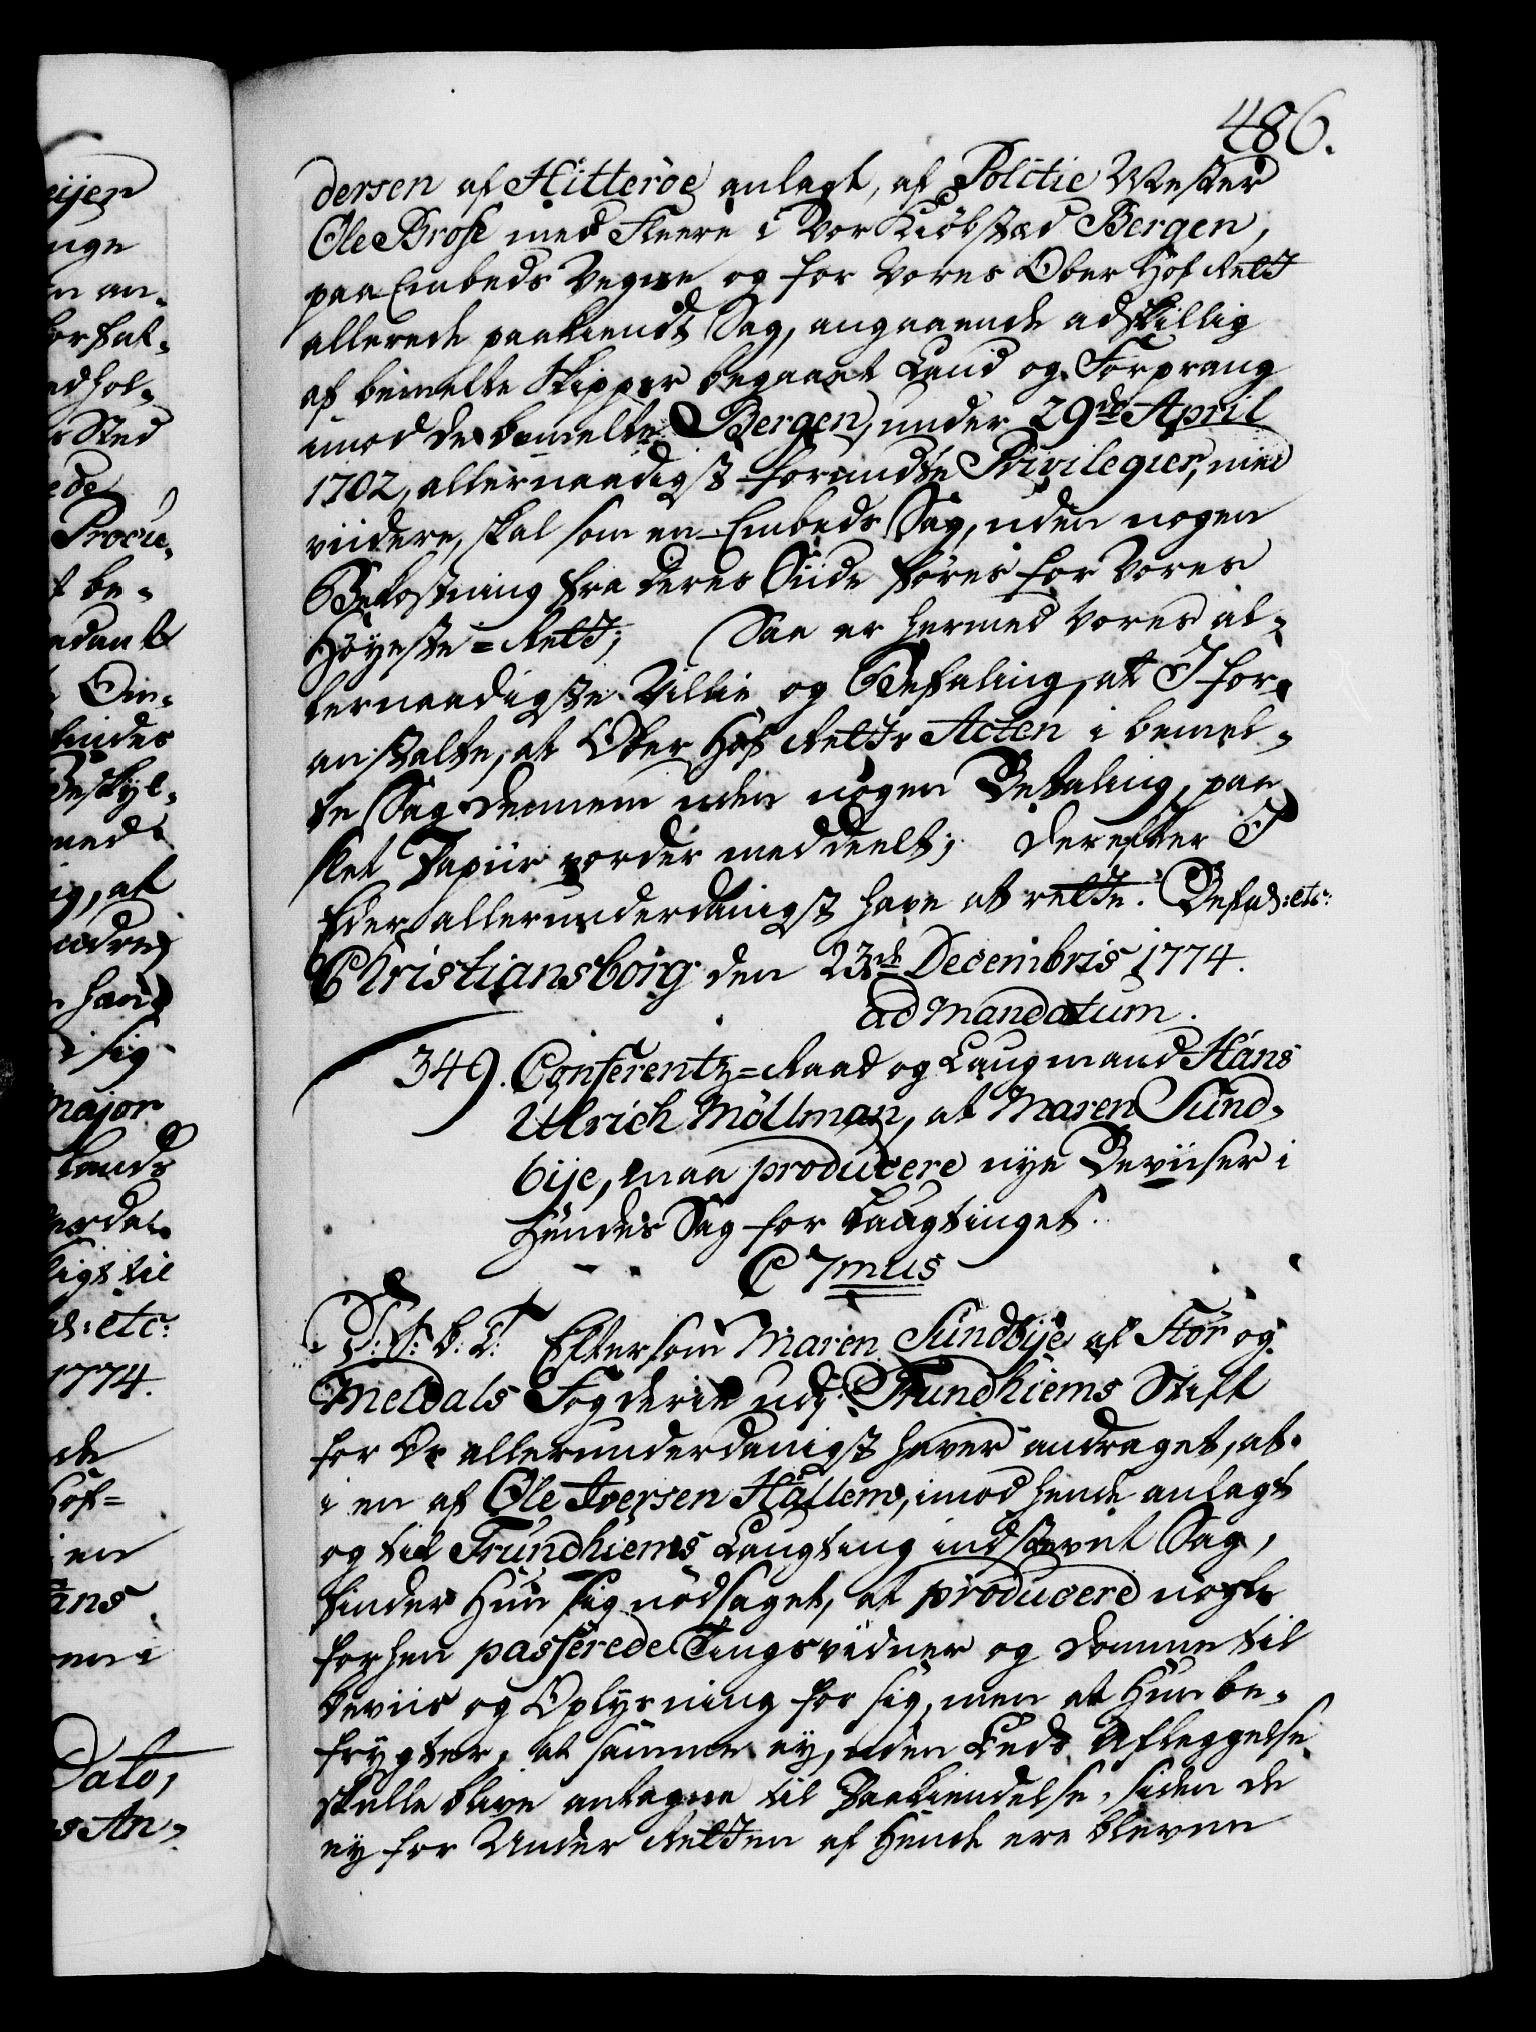 486.
dersen af Hitteröe anlagt, af Politie Mester
Ole Brose med Fleere i Vor Kiöbstæd Bergen,
paa Embeds Vegne og for Vores Ober Hof Rett
allerede paakiendt Sag, angaaende adskillig
af bemelte Skipper begaaet Laud og Forprang
imod de bemelte Bergen, under 29de April
1702, allernaadigst forundte Privilegier, med
viidere, skal som en Embeds Sag, uden nogen
Bekostning fra deres Siide föres for Vores
Höyeste=Rett; Saa er hermed Vores al-
lernaadigste Villie og Befaling, at I for-
anstalte, at Ober Hof Retts Acten i bemel-
te Sag dennem uden nogen Betaling, paa
slet Papiir vorder meddeelt; Derefter I
Eder allerunderdanigst have at rette. Befal: etc:
Christiansborg den 23de Decembris 1774.
ad Mandatum.
349. Conferentz=Raad og Laugmand Hans
Ulrich Möllman, at Maren Sund-
bye, maa producere nye Beviiser i
Hendes Sag for Laugtinget.
C 7mus
Eftersom Maren Sundbye af Stör og
Meldals Fogderie udj Trundhiems Stift
for Os allerunderdanigst haver andraget, at
i en af Ole Iversen Hallem, imod hende anlagt
og til Trundhiems Laugting indstevnt Sag,
finder Hun sig nödsaget, at producere nogle
forhen passerede Tingsvidner og Domme til
Beviis og Oplysning for sig, men at Hun be-
frygter, at samme ey, uden Eeds Aflæggelse
skulle blive antagne til Paakiendelse, siden de
ey for Under Retten af Hende ere blevne